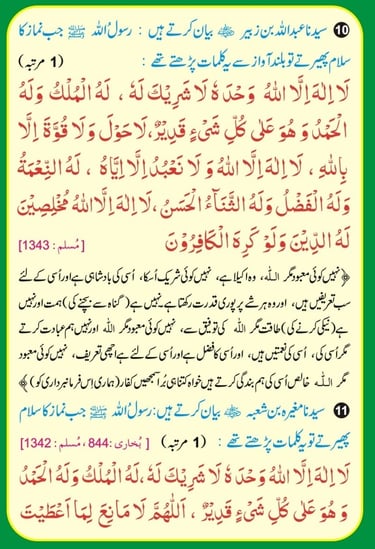 10 سیدنا عبداللہ بن زبیر ؓ بیان کرتے ہیں : رسولُ اللہ ﷺ جب نماز کا
سلام پھیرتے تو بلند آواز سے یہ کلمات پڑھتے تھے : (1 مرتبہ)
لَا اِلٰهَ اِلَّا اللهُ وَحْدَهٗ لَا شَرِيْكَ لَهٗ ، لَهُ الْمُلْكُ وَلَهُ
الْحَمْدُ وَهُوَ عَلٰى كُلِّ شَیْءٍ قَدِيْرٌ، لَا حَوْلَ وَلَا قُوَّةَ اِلَّا
بِاللهِ ، لَا اِلٰهَ اِلَّا اللهُ وَلَا نَعْبُدُ اِلَّا اِيَّاهُ ، لَهُ النِّعْمَةُ
وَلَهُ الْفَضْلُ وَلَهُ الثَّنَآءُ الْحَسَنُ، لَا اِلٰهَ اِلَّا اللهُ مُخْلِصِيْنَ
لَهُ الدِّيْنَ وَلَوْ كَرِهَ الْكَافِرُوْنَ [مُسلم : 1343]
﴿نہیں کوئی معبود مگر اللہ، وہ اکیلا ہے، نہیں کوئی شریک اُسکا، اُسی کی بادشاہی ہے اور اُسی کے لئے
سب تعریفیں ہیں، اور وہ ہر شے پر پوری قدرت رکھتا ہے۔ نہیں ہے (گناہ سے بچنے کی) ہمت اور نہیں
ہے (نیکی کرنے کی) طاقت مگر اللہ کی توفیق سے، نہیں کوئی معبود مگر اللہ اور نہیں ہم عبادت کرتے
مگر اُسی کی، اُسی کی نعمتیں ہیں، اور اُسی کا فضل ہے اور اُسی کے لئے ہے اچھی تعریف، نہیں کوئی معبود
مگر اللہ خالص اُسی کی ہم بندگی کرتے ہیں خواہ کتنا ہی بُرا سمجھیں کفار (ہماری اِس فرمانبرداری کو)﴾
11 سیدنا مغیرہ بن شعبہ ؓ بیان کرتے ہیں: رسولُ اللہ ﷺ جب نماز کا سلام
پھیرتے تو یہ کلمات پڑھتے تھے : (1 مرتبہ) [بُخاری : 844، مُسلم : 1342]
لَا اِلٰهَ اِلَّا اللهُ وَحْدَهٗ لَا شَرِيْكَ لَهٗ، لَهُ الْمُلْكُ وَلَهُ الْحَمْدُ
وَهُوَ عَلٰى كُلِّ شَیْءٍ قَدِيْرٌ ، اَللّٰهُمَّ لَا مَانِعَ لِمَا اَعْطَيْتَ